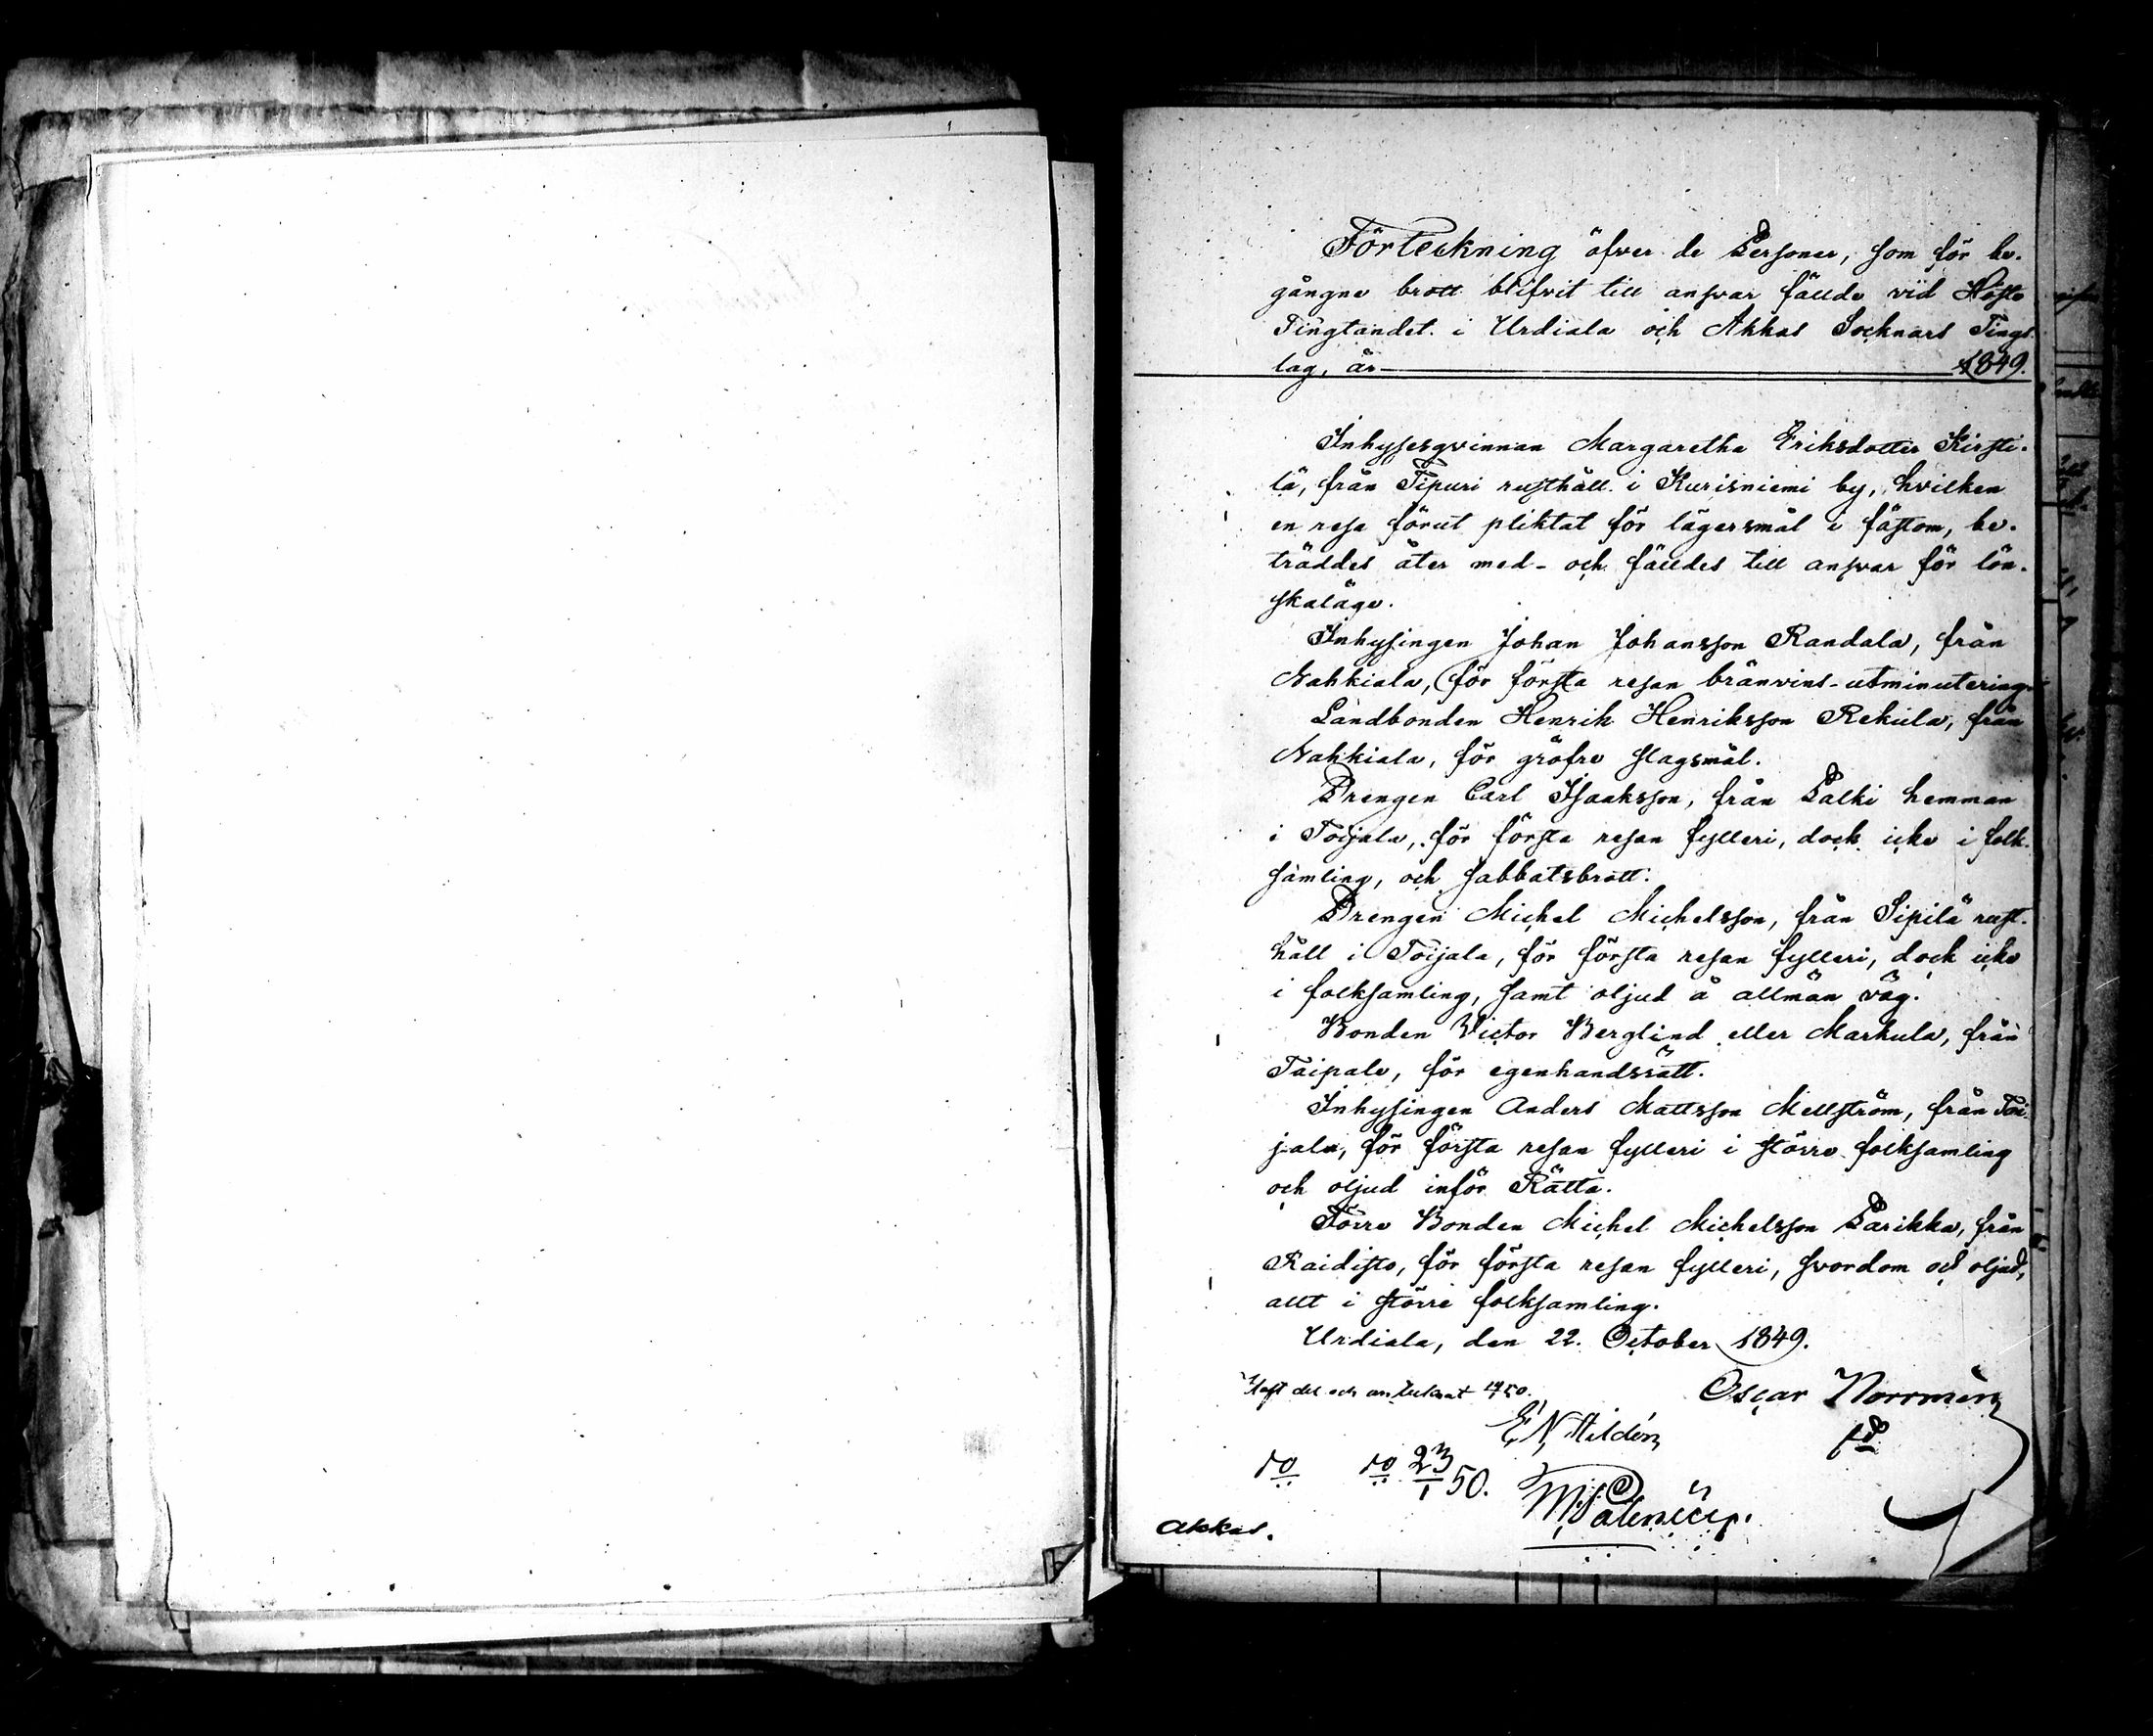 Förteckning öfver de Personer, som för be-
gångne brott blifvit till ansvar fällde vid Höste
Tingtandet i Urdiala och Akkas Socknars Tings-
lag, år 1849.
Inhysesqvinnan Margaretha Eriksdotter Kirsti-
lä, från Tipuri rusthåll i Kurisniemi by, hvilken
en resa förut pliktat för lägersmål i fästom, be-
träddes åter med- och fälldes till ansvar för lön-
skaläge.
Inhysingen Johan Johansson Randala, från
Nahkiala, för första resan bränvins-utminutering.
Landbonden Henrik Henriksson Rekula, från
Nahkiala, för gröfre slagsmål.
Drengen Carl Isaaksson, från Palki hemman
i Toijala, för första resan fylleri, dock icke i folk-
samling, och sabbatsbrott.
Drengen Michel Michelsson, från Sipilä rust-
håll i Toijala, för första resan fylleri, dock icke
i folksamling, samt oljud å allmän väg.
Bonden Victor Berglind eller Markula, från
Taipale, för egenhandsrätt.
Inhysingen Anders Mattsson Mellström, från Toi-
jala, för första resan fylleri i större folksamling
och oljud inför Rätta.
Förre Bonden Michel Michelsson Parikka, från
Raidisto, för första resan fylleri, svordom och oljud,
allt i större folksamling.
Urdiala, den 22. October 1849.
Oscar Norrmén
E N Hildén
23/1 50.
Akkas.